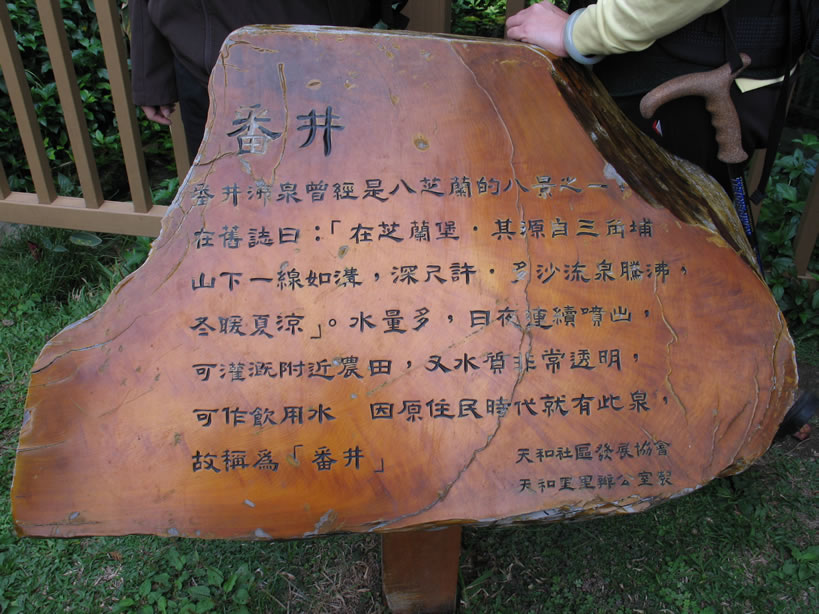 番井
番井沸泉曾經是八芝蘭的八景之一，
在舊誌曰：「在芝蘭堡．其源自三角埔
山下一線如溝，深尺許．多沙流泉騰沸，
冬暖夏涼」。水量多，日夜連續噴出，
可灌溉附近農田，又水質非常透明，
可作飲用水　因原住民時代就有此泉，
故稱為「番井」
天和社區發展協會
天和里里辦公室製